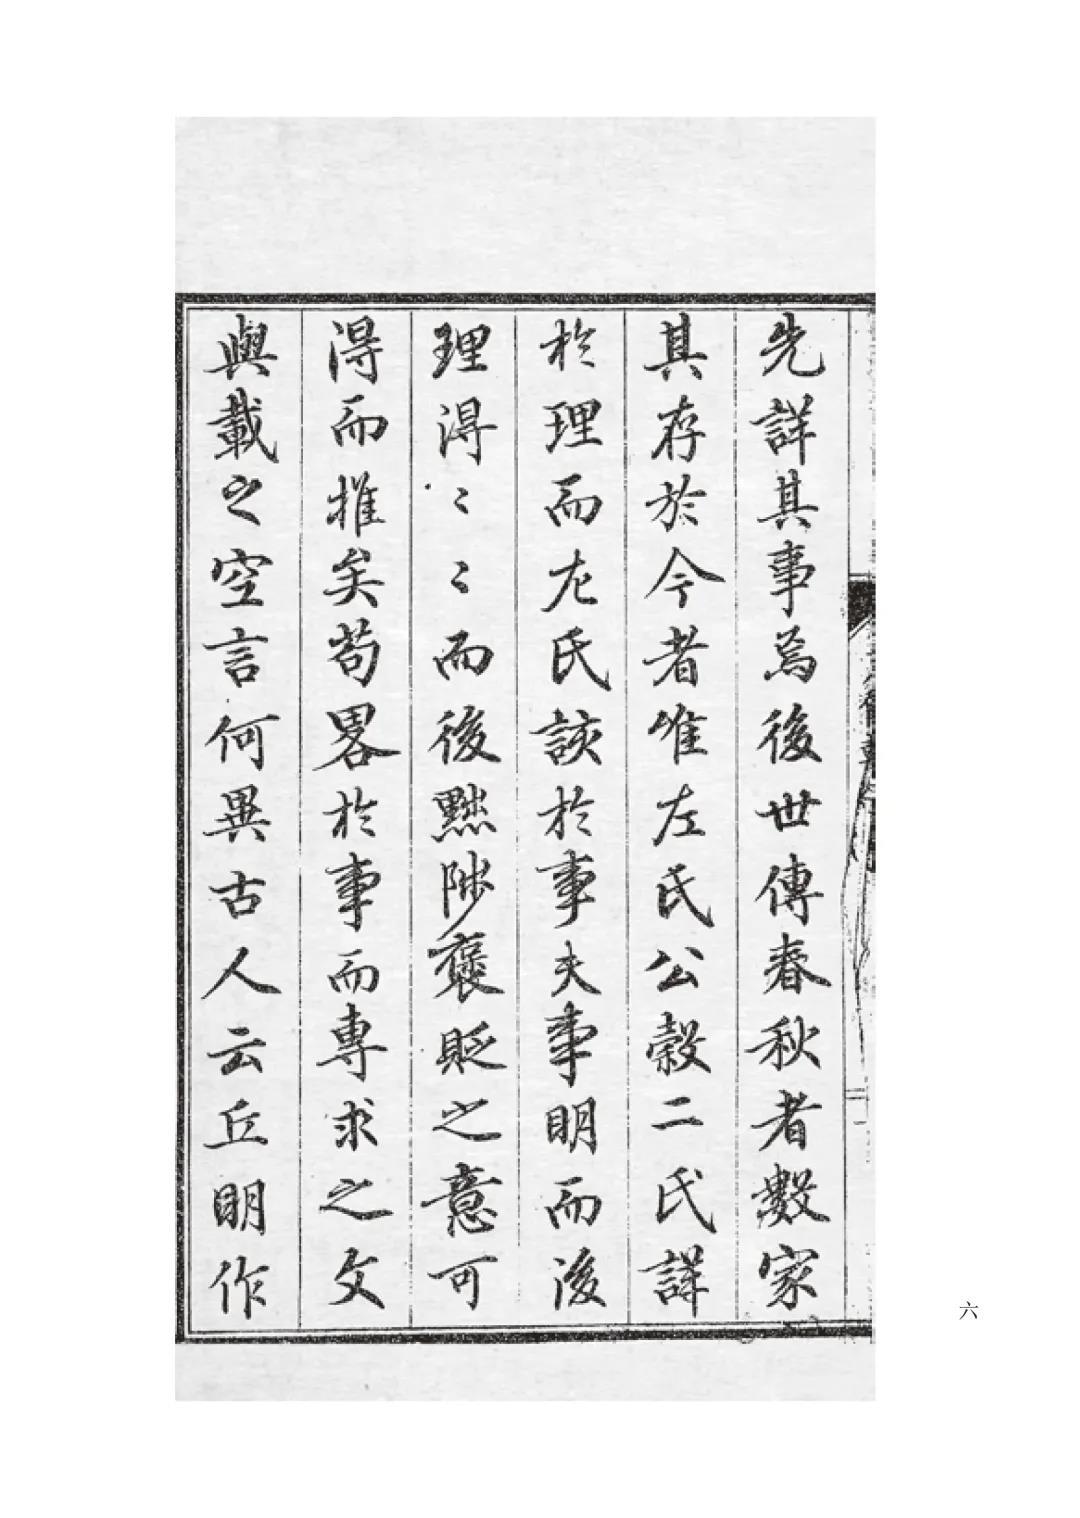 先詳其事為後世傳春秋者數家
其存於今者惟左氏公糓二氏詳
於理而左氏該於事夫事明而後
理得〻〻而後黜陟褒貶之意可
得而推矣苟畧於事而專求之文
與載之空言何異古人云丘明作
六